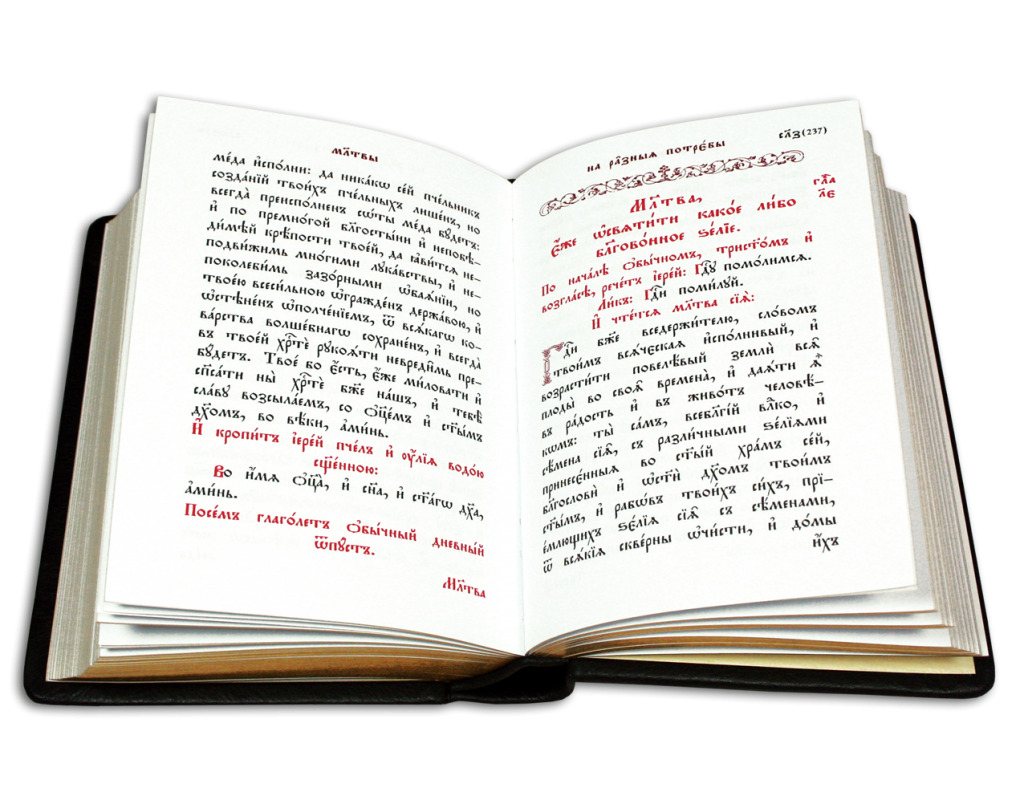 мл҃твы
ме́да и҆спо́лни: да ника́кѡ се́й пче́льникъ
созда́нїй твои́хъ пче́льныхъ лише́нъ, но
всегда̀ преиспо́лненъ сѡ́ты ме́да бꙋ́детъ:
и҆ по премно́гой бл҃госты́ни и҆ непобѣ-
ди́мѣй крѣ́пости твое́й, да ꙗ҆ви́тся не-
подви́жимь мно́гими лꙋка́вствы, и҆ не-
поколеби́мь зазо́рными ѡ҆бая̑нїи, но
твое́ю всеси́льною ѡ҆гражде́нъ держа́вою, и҆
ѡ҆стѣне́нъ ѡ҆полче́нїемъ, ѿ всѧ́кагѡ ко-
ва́рства волше́бнагѡ сохране́нъ, и҆ всегда̀
въ твое́й хрⷭ҇тѐ рꙋкоѧ́ти невреди́мь пре-
бꙋ́детъ. Твое́ бо є҆́сть, є҆́же ми́ловати и҆
спⷭ҇а́ти ны̀ хрⷭ҇тѐ бж҃е на́шъ, и҆ тебѣ̀
сла́вꙋ возсыла́емъ, со ѻ҆ц҃е́мъ и҆ ст҃ы́мъ
дх҃омъ, во вѣ́ки, а҆ми́нь.
И҆ кропи́тъ і҆ере́й пче́лъ и҆ ᲂу҆́лїѧ водо́ю
сщ҃е́нною:
Во и҆́мѧ ѻ҆ц҃а̀, и҆ сн҃а, и҆ ст҃а́гѡ дх҃а,
а҆ми́нь.
Посе́мъ глаго́летъ ѻ҆бы́чный дневны́й
ѿпꙋ́стъ.
Мл҃тва
на ра̑зныѧ потрє́бы
сл҃з (237)
Мл҃тва,
гл҃а
л҃є
є҆́же ѡ҆святи́ти како́е ли́бо
бл҃гово́нное ѕе́лїе.
По нача́лѣ ѻ҆бы́чномъ, трист҃о́мъ и҆
возгла́сѣ, рече́тъ і҆ере́й: Гдⷭ҇ꙋ помо́лимся.
Ли́къ: Гдⷭ҇и поми́лꙋй.
И҆ чте́тся мл҃тва сїѧ̀:
Гдⷭ҇и бж҃е вседержи́телю, сло́вомъ
твои́мъ всѧ́ческая и҆спо́лнивый, и҆
возрасти́ти повелѣ́вый землѝ всѧ̑
плоды̀ во своѧ̑ времена̀, и҆ даѧ́ти ѧ҆̀
въ ра́дость и҆ въ живо́тъ человѣ́-
кѡмъ: ты̀ са́мъ, всебл҃гі́й влⷣко, и҆
сѣ́мена сїѧ̑, съ разли́чными ѕе́лїѧми
принесе́нныѧ во ст҃ы́й хра́мъ се́й,
бл҃гословѝ и҆ ѡ҆ст҃ѝ дх҃омъ твои́мъ
ст҃ы́мъ, и҆ рабѡ́въ твои́хъ си́хъ, прї-
е́млющихъ ѕє́лїѧ сїѧ̑ съ сѣ́менами,
ѿ всѧ́кїѧ скве́рны ѡ҆чи́сти, и҆ до́мы
и҆́хъ